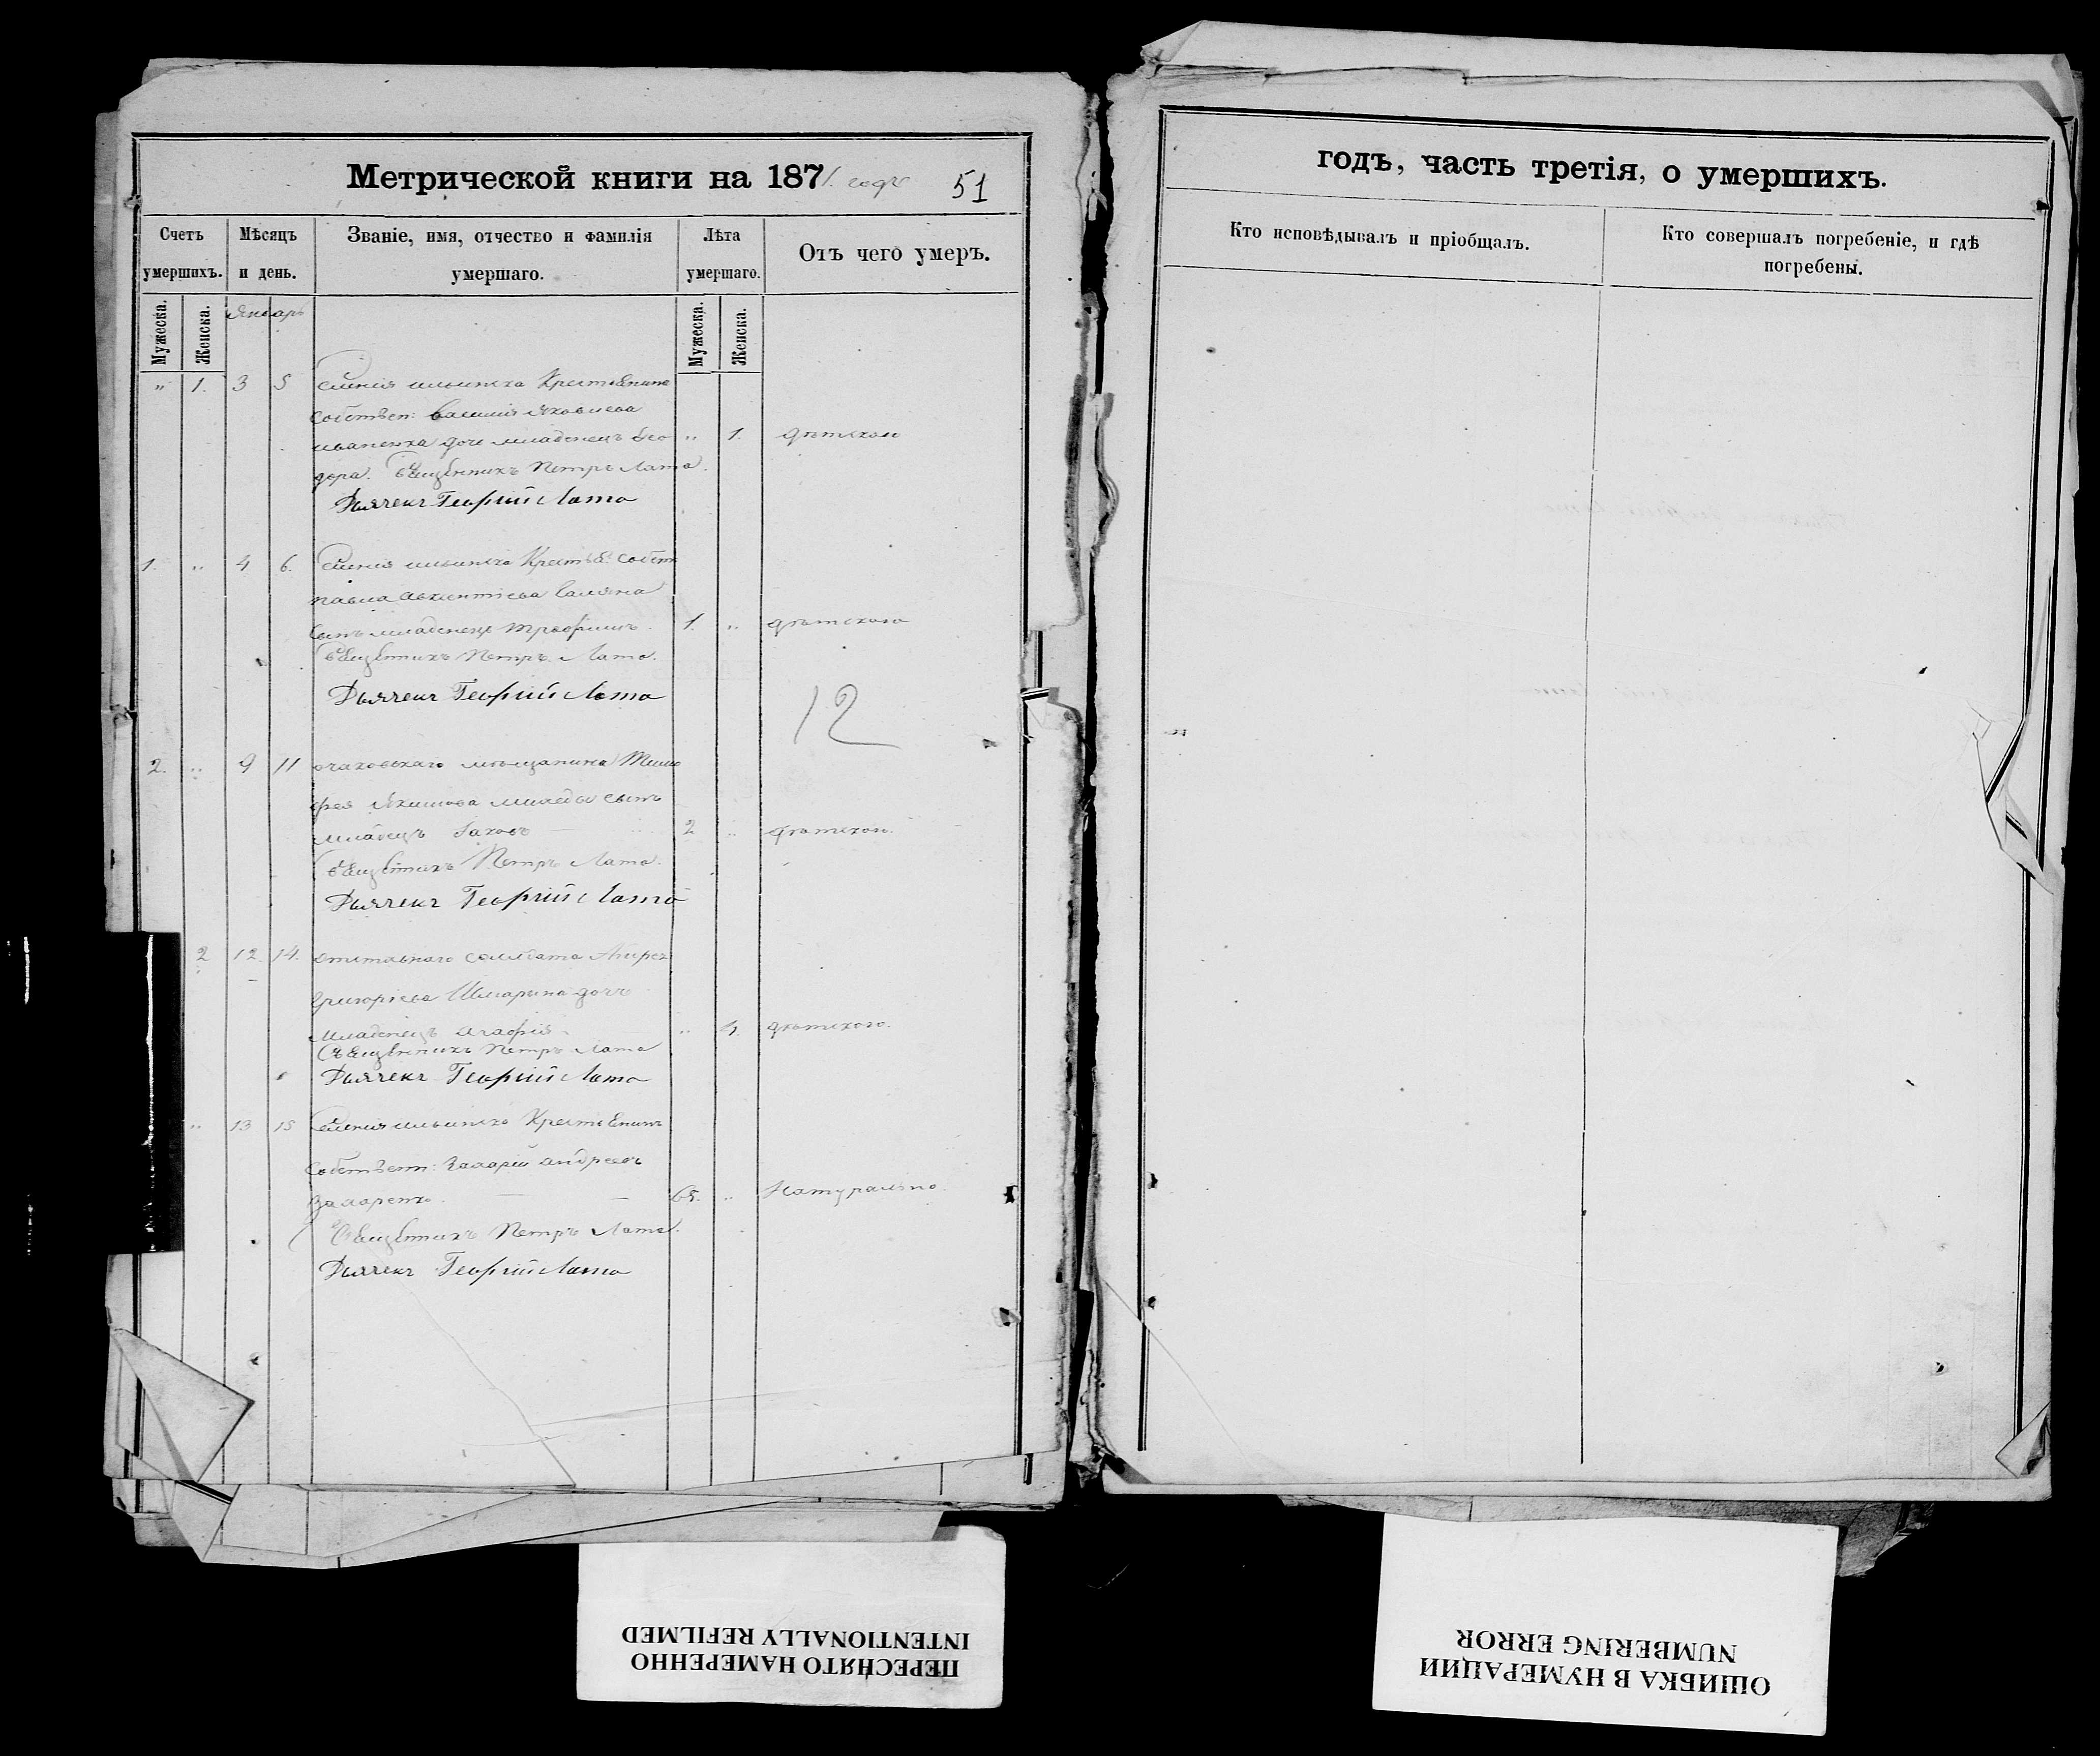 Метрической книги на 1871. годъ 51
Счетъ умершихъ.
Мѣсяцъ и день.
Званіе, имя, отчество и фамилія умершаго.
Лѣта умершаго.
Отъ чего умеръ.
Мужеска. Женска. Январь Мужеска. Женска.
" 1. 3 5 селенія ильинска Крестьянина
Собствен: василія Яковлева
дочь младенецъ Ѳео " 1. дѣтской
дора. Священникъ Петръ Лата.
Дьячекъ Георгій Лата
1. " 4 6. селенія ильинска Крестья: собств
павла авксентіева
сынъ младенецъ трофимъ. 1. " дѣтской
Священникъ Петръ Лата.
Дьячекъ Георгій Лата
12
2. " 9 11 очаковскаго мѣщанина Тимо
фея Якимова сынъ
младенецъ Іаковъ — 2 " дѣтской.
Священникъ Петръ Лата.
Дьячекъ Георгій Лата
2 12. 14. отставнаго солдата Андрея
Григоріева дочь
младенецъ агафія " дѣтской.
Священникъ Петръ Лата
Дьячекъ Георгій Лата
" 13 15 селенія ильинска Крестьянинъ
Собствен: андреевъ
— — 65. " Натурально.
Священникъ Петръ Лата.
Дьячекъ Георгій Лата
годъ, часть третія, о умершихъ.
Кто исповѣдывалъ и пріобщалъ.
Кто совершалъ погребеніе, и гдѣ
погребены.
ПЕРЕСНЯТО НАМЕРЕННО
INTENTIONALLY REFILMED
ОШИБКА В НУМЕРАЦИИ
NUMBERING ERROR